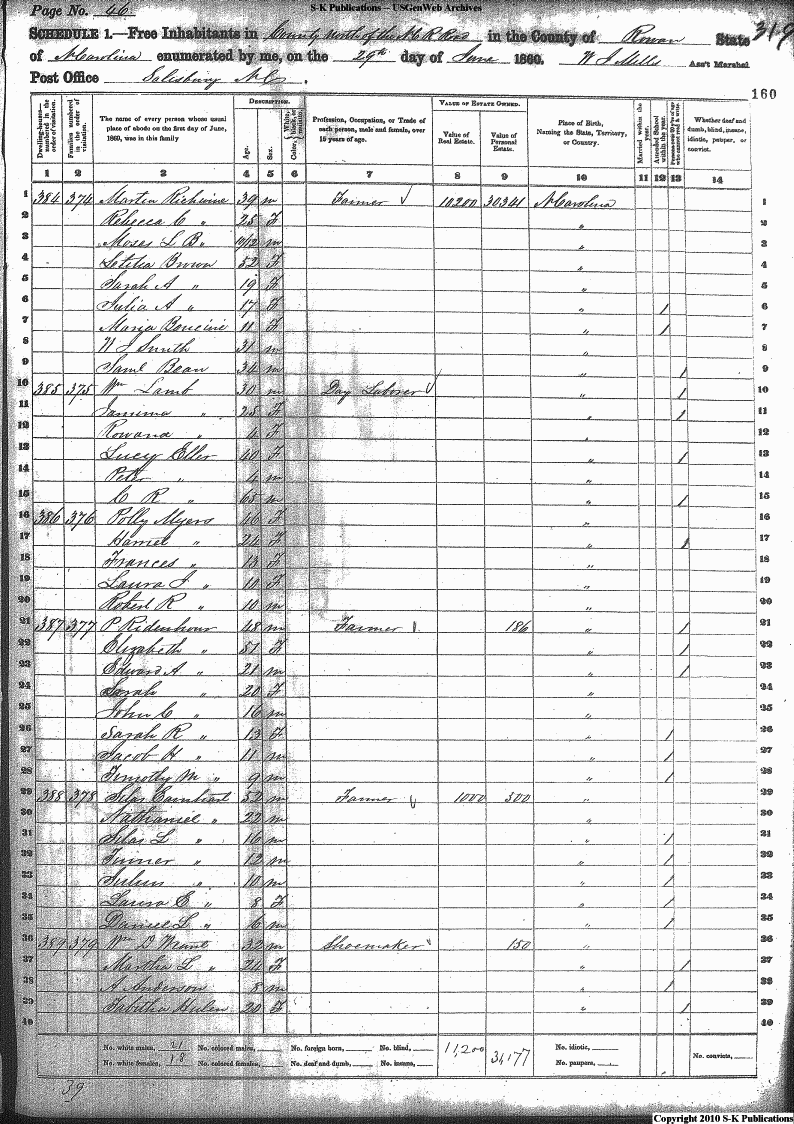 S-K Publications – USGenWeb Archives
Page No. 46
SCHEDULE 1.—Free Inhabitants in County North of the N C R Road in the County of Rowan State
319
of N Carolina enumerated by me, on the 29th day of June 1860. W J Mills Ass't Marshal
Post Office Salisbury N C.
160
Dwelling-houses—numbered in the order of visitation.
Families numbered in the order of visitation.
The name of every person whose usual place of abode on the first day of June, 1860, was in this family
DESCRIPTION.
Age.
Sex.
Color,
Profession, Occupation, or Trade of each person, male and female, over 15 years of age.
VALUE OF ESTATE OWNED.
Value of Real Estate.
Value of Personal Estate.
Place of Birth, Naming the State, Territory, or Country.
Married within the year.
Attended School within the year.
Whether deaf and dumb, blind, insane, idiotic, pauper, or convict.
1 2 3 4 5 6 7 8 9 10 11 12 13 14
1 384 374 Martin Richwine 39 m Farmer 10,200 30,341 N Carolina 1
2 Rebecca C " 25 F " 2
3 Moses L B " 10/12 m " 3
4 Letitia Brown 52 F " 4
5 Sarah A " 19 F " 5
6 Julia A " 17 F " / 6
7 Maria 11 F " / 7
8 Smith 31 m " 8
9 Saml Bean 34 m " / 9
10 385 375 Wm Lamb 30 m Day Laborer " / 10
11 Jamima " 25 F " / 11
12 Rowana " 4 F " 12
13 Lucy Eller 40 F " / 13
14 Peter " 4 m " 14
15 C R " 65 m " / 15
16 386 376 Polly Myers 46 F " 16
17 Harriet " 24 F " / 17
18 Frances " 13 F " 18
19 Laura J " 10 F " 19
20 Robert R " 10 m " 20
21 387 377 P Ridenhour 48 m Farmer 186 " / 21
22 Elizabeth " 51 F " / 22
23 Edward A " 21 m " / 23
24 Sarah " 20 F " 24
25 John C " 16 m " 25
26 Sarah R " 13 F " / 26
27 Jacob H " 11 m " / 27
28 Timothy M " 9 m " / 28
29 388 378 Silas Earnhart 52 m Farmer 1000 300 " 29
30 Nathaniel " 22 m " 30
31 Silas L " 16 m " / 31
32 Turner " 12 m " / 32
33 Julius " 10 m " / 33
34 Laura E " 8 F " / 34
35 Daniel L " 6 m " / 35
36 389 379 Wm D 32 m Shoemaker 150 " 36
37 Martha L " 24 F " / 37
38 A Anderson 8 m " / 38
39 Tabitha Hulen 20 F " / 39
40 40
No. white males, 21 No. colored males, No. foreign born, No. blind, 11,200 31,177 No. idiotic, No. convicts,
No. white females, 18 No. colored females, No. deaf and dumb, No. insane, No. paupers,
39
Copyright 2010 S-K Publications